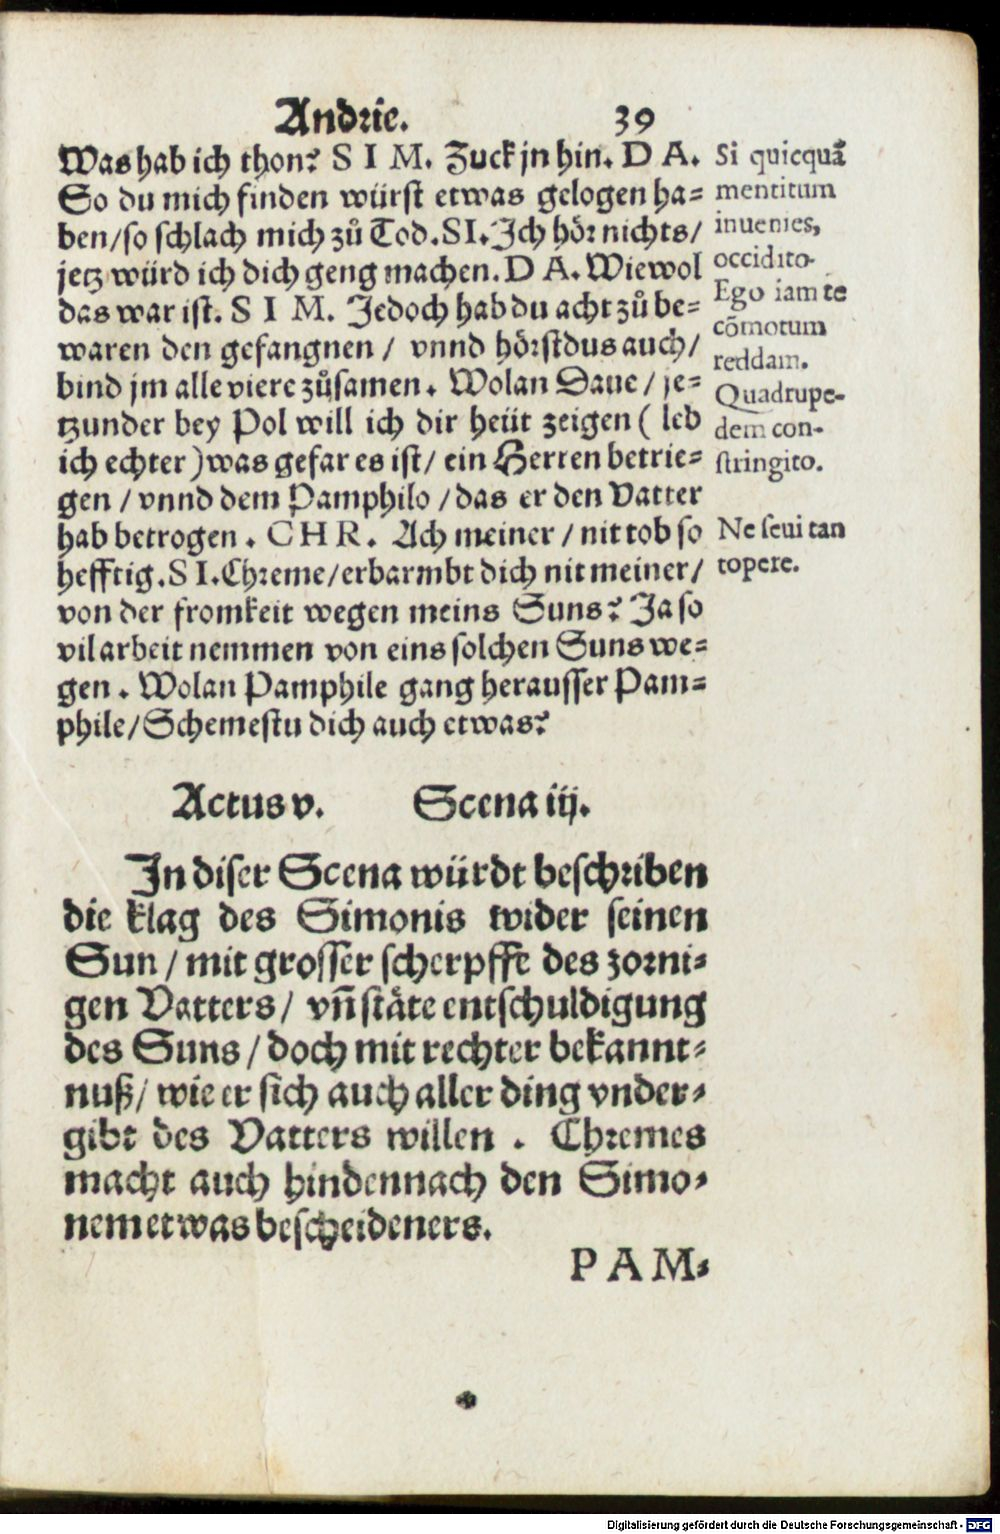 Andrie. 39
Was hab ich thon? S I M. Zuck jn hin. D A.
So du mich finden würst etwas gelogen ha=
ben/so schlach mich zů Tod. SI. Jch hör nichts/
jetz würd ich dich geng machen. D A. Wiewol
das war ist. S I M. Jedoch hab du acht zů be=
waren den gefangnen / vnnd hörstdus auch/
bind jm alle viere zůsamen. Wolan Daue / je=
tzunder bey Pol will ich dir heüt zeigen ( leb
ich echter ) was gefar es ist/ ein Herren betrie=
gen / vnnd dem Pamphilo / das er den Vatter
hab betrogen. CHR. Ach meiner / nit tob so
hefftig. S I. Chreme/erbarmbt dich nit meiner/
von der fromkeit wegen meins Suns? Ja so
vil arbeit nemmen von eins solchen Suns we=
gen. Wolan Pamphile gang herausser Pam=
phile/Schemestu dich auch etwas?
Si quicquā
mentitum
inuenies,
occidito.
Ego iam te
cōmotum
reddam.
Quadrupe-
dem con-
stringito.
Ne seui tan
topere.
Actus v. Scena iij.
Jn diser Scena würdt beschriben
die klag des Simonis wider seinen
Sun / mit grosser scherpffe des zorni=
gen Vatters / vñ stäte entschuldigung
des Suns / doch mit rechter bekannt=
nuß/ wie er sich auch aller ding vnder=
gibt des Vatters willen. Chremes
macht auch hindennach den Simo=
nem etwas bescheideners.
PAM=
Digitalisierung gefördert durch die Deutsche Forschungsgemeinschaft - DFG